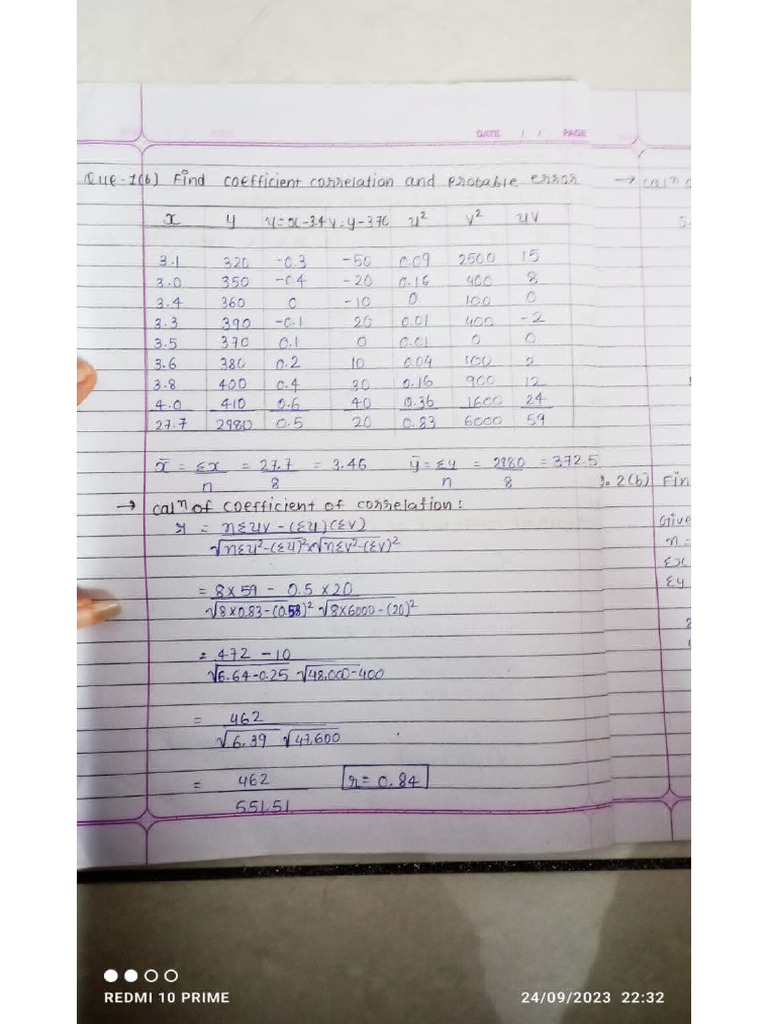 DATE / / PAGE
Que-1(b) Find coefficient correlation and probable error
x y u=x-3.4 v=y-370 u² v² uv
3.1 320 -0.3 -50 0.09 2500 15
3.0 350 -0.4 -20 0.16 400 8
3.4 360 0 -10 0 100 0
3.3 390 -0.1 20 0.01 400 -2
3.5 370 0.1 0 0.01 0 0
3.6 380 0.2 10 0.04 100 2
3.8 400 0.4 30 0.16 900 12
4.0 410 0.6 40 0.36 1600 24
27.7 2980 0.5 20 0.83 6000 59
x̄ = Σx/n = 27.7/8 = 3.46 ȳ = Σy/n = 2980/8 = 372.5
→ calⁿ of coefficient of correlation :
r = nΣuv - (Σu)(Σv) / √nΣu²-(Σu)² × √nΣv²-(Σv)²
= 8×59 - 0.5×20 / √8×0.83-(0.5)² √8×6000-(20)²
= 472 - 10 / √6.64-0.25 √48,000-400
= 462 / √6.39 √47,600
= 462 / 551.51 r = 0.84
→ calⁿ
2(b) Fin
Give
n =
Σx
Σy
REDMI 10 PRIME 24/09/2023 22:32